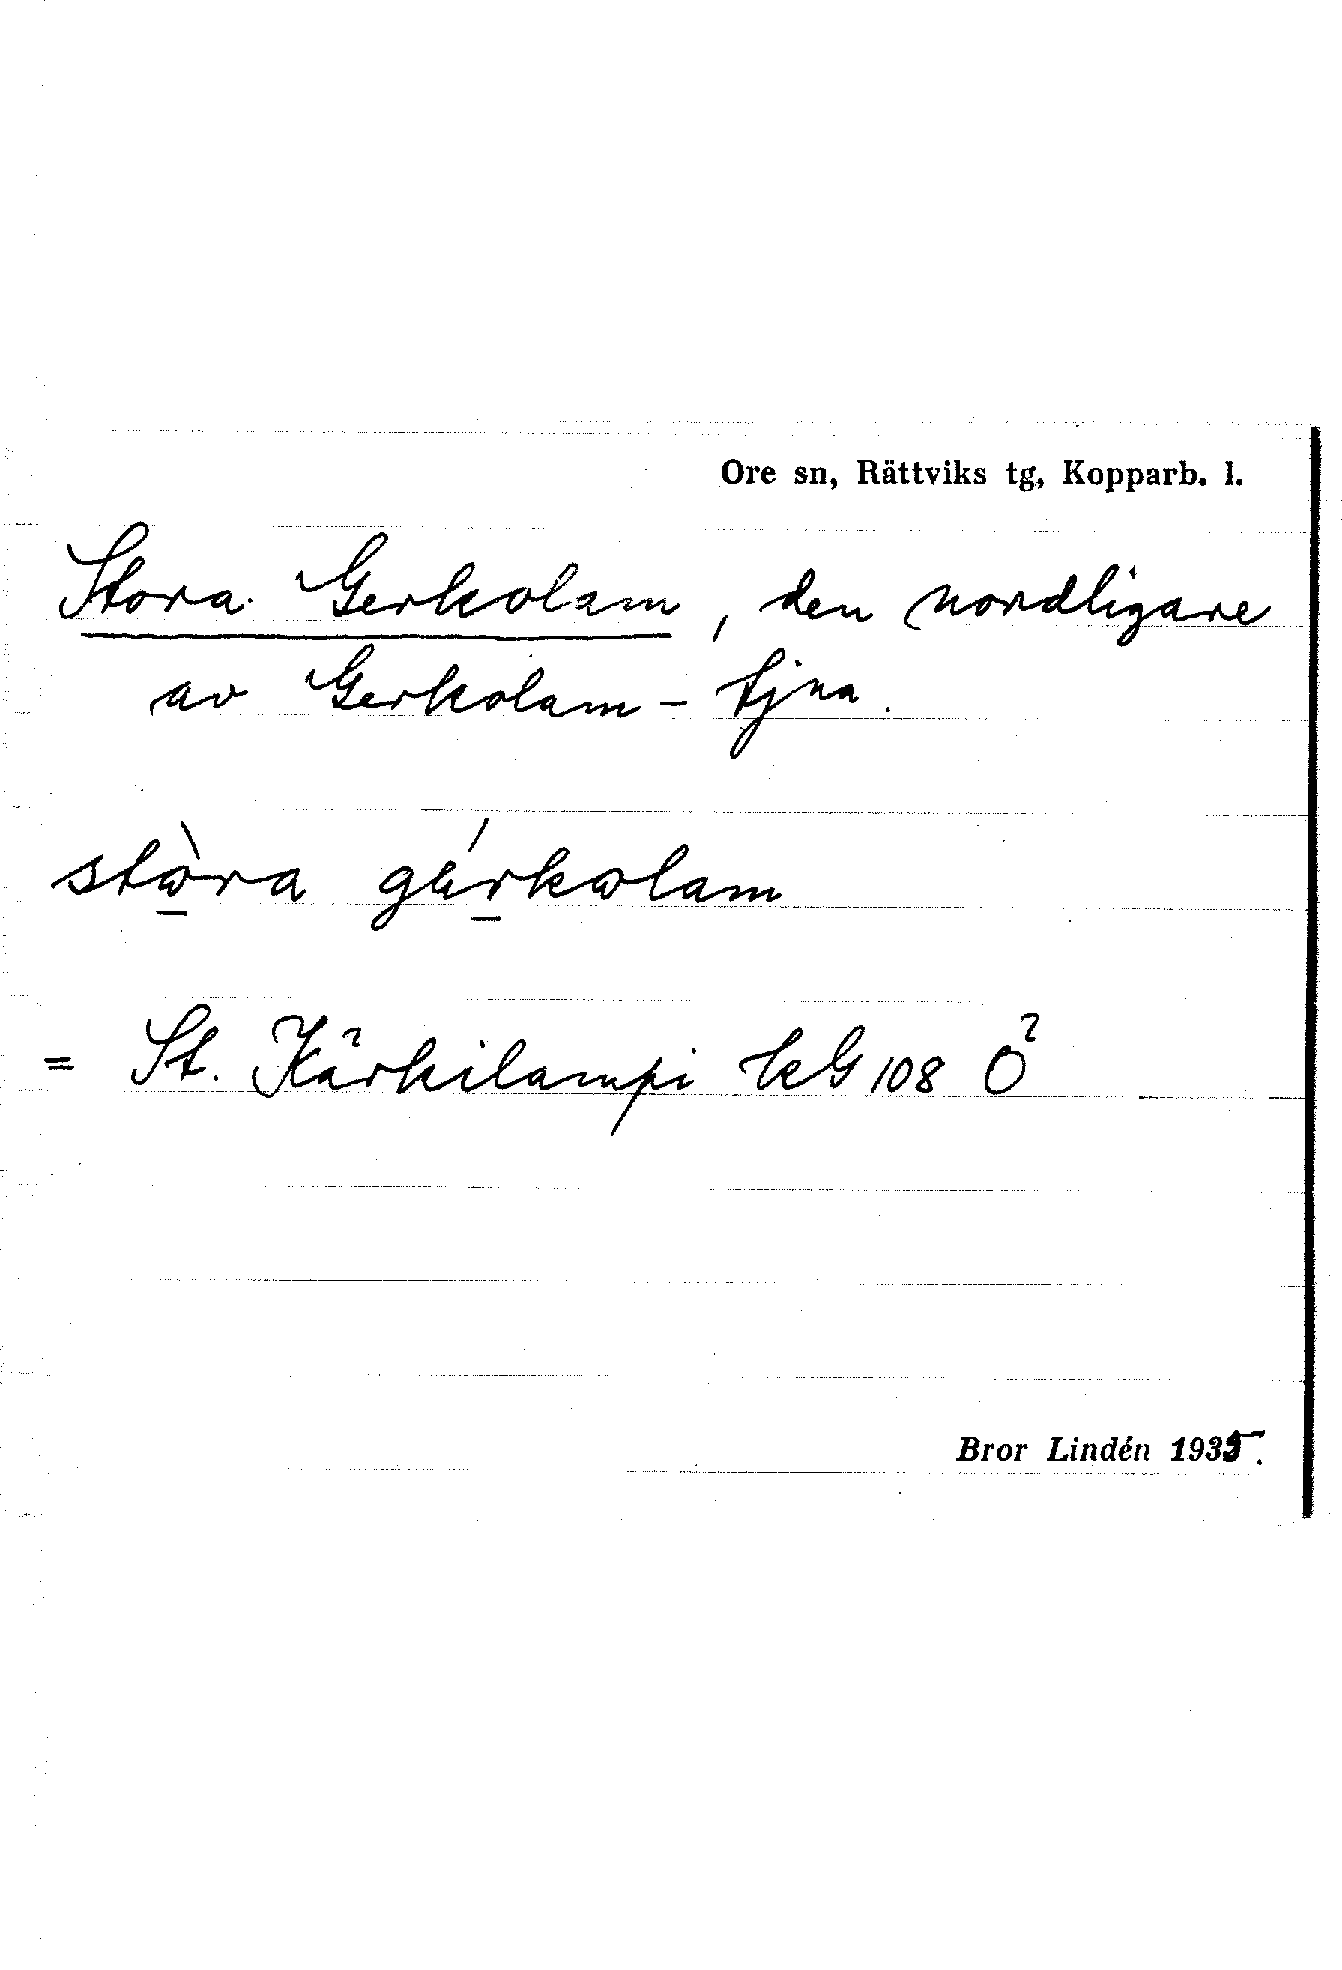 Ore sn, Rättviks tg, Kopparb. l.
Stora Gerkolam, den nordligare
av Gerkolam-tjna.
stòra gérkolam
= St. Kärkilampi kG 108 Ö
Bror Lindén 1935.